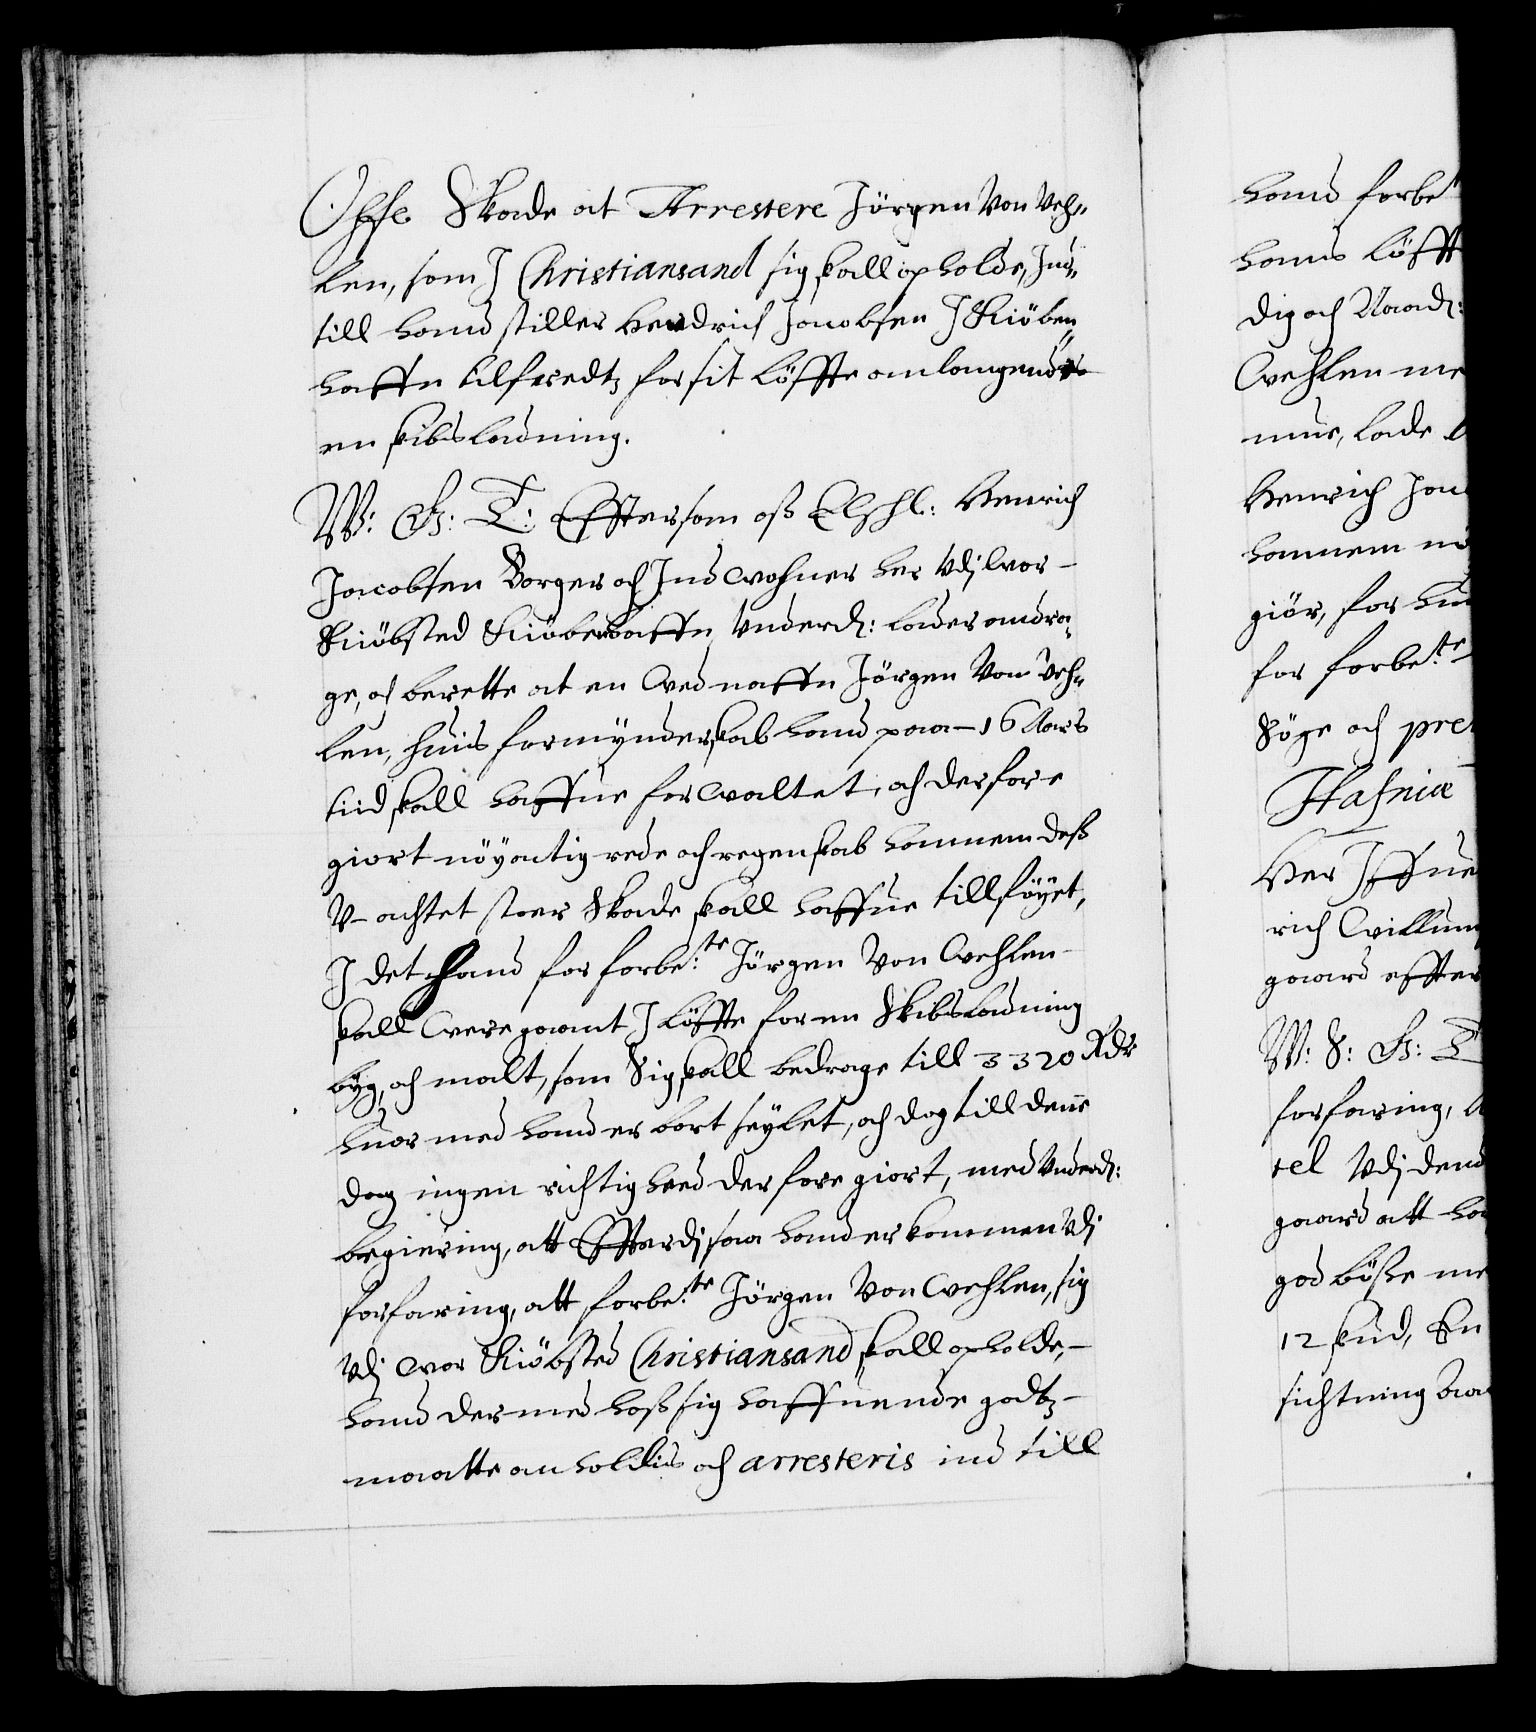 Offe Skade at Arrestere Jörgen Von Veh„
len, som J Christiansand sig skall opholde, Ind„
till hand stiller Hendrich Jacobsen J Kiöben„
haffn tilfredtz for sit löffte anlangendes
en skibsladning.
W: G: T: Efftersom oß Elschl: Henrich
Jacobsen Borger och Indwohner her Udj wor
Kiöbsted Kiöbenhaffn Underd: lader andra„
ge, och berette at en Ved naffn Jörgen Von Veh„
len, huis formynderskab hand paa 16 Aars
tiid skall haffue forwaltet, och derfore
giort nöyactig rede och regenskab hannem deß
V-achtet stoer Skade skall haffue tillföyet,
J det hand for forbe:te Jörgen Von Wehlen
skall were gaaet J löffte for en Skibsladning
byg, och malt, som Sig skall bedrage till 3320 Rdr
huor med hand er bort seylet, och dog till denne
dag ingen richtighed derfore giort, med Underd:
begiering, att Effterdj saa hand er kommen Udj
forfaring, att forbe:te Jörgen Von Wehlen, sig
Udj wor Kiöbsted Christiansand skall opholde,
hand der med hoß sig haffuende godtz
maatte anholdis och arresteris ind till
hand forbe
hans löfft
dig och Naad:
Wehlen me
nue, lade
Henrich Jac
hannem
giör, for
for forbe:te
Söge och pre
Hafniæ
Her Iffue
rich Willum
gaard effter
W: S: G: T
forfaring,
tel Udj den
gaard att ha
god böße me
12 skud, En
sichtning